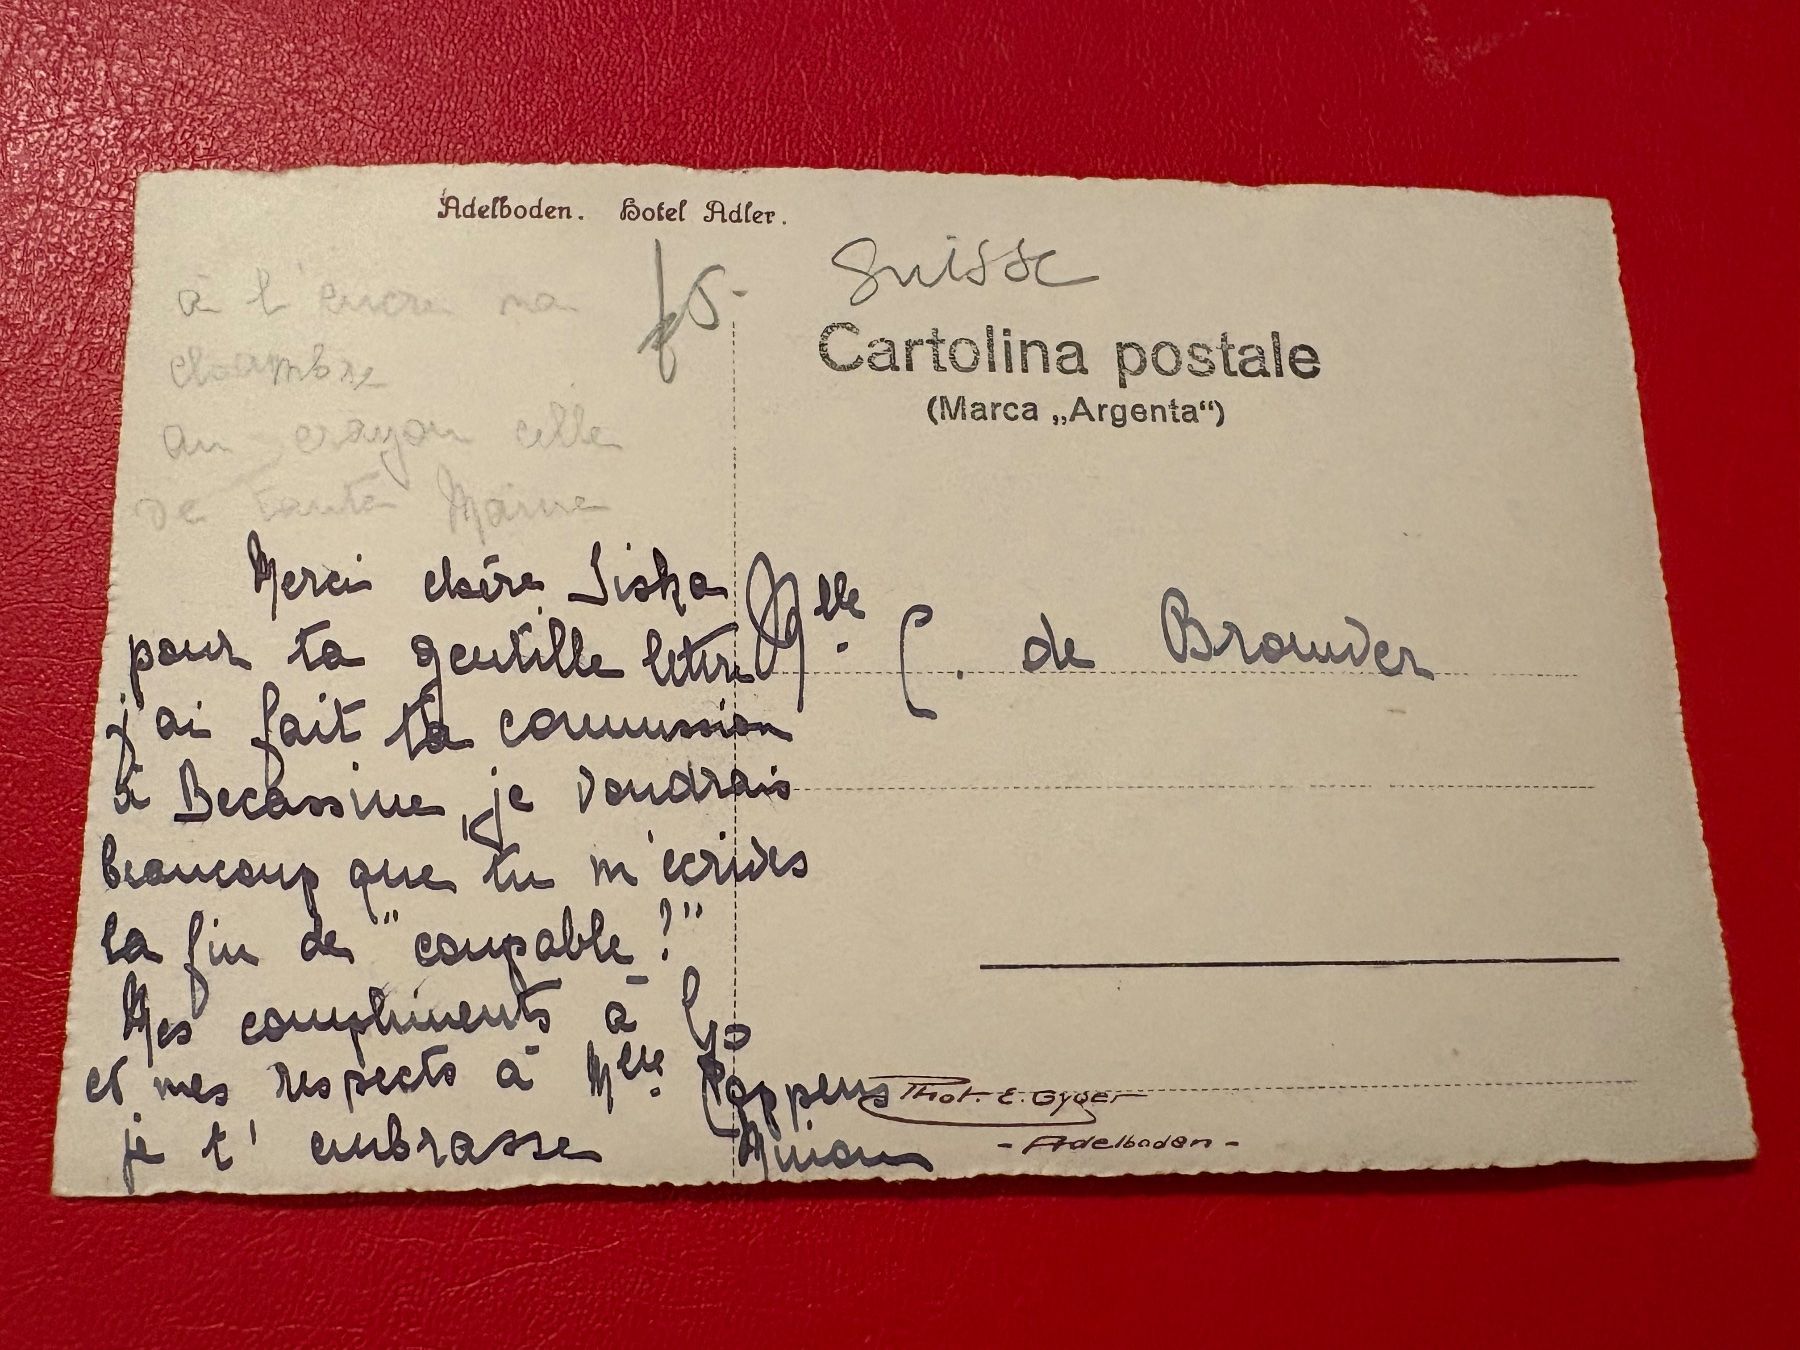 Adelboden. Hotel Adler.
à l'encre ma
chambre
au crayon celle
de tante
Suisse
Cartolina postale
(Marca „Argenta“)
Merci chère Siska
pour ta gentille lettre
j'ai fait ta commission
à Becassine, je voudrais
beaucoup que tu m'écrives
la fin de "coupable!"
Mes compliments à
et mes respects à Mlle Coppens
je t'embrasse
Mlle C. de Brouwer
Phot. E. Gyger
- Adelboden -